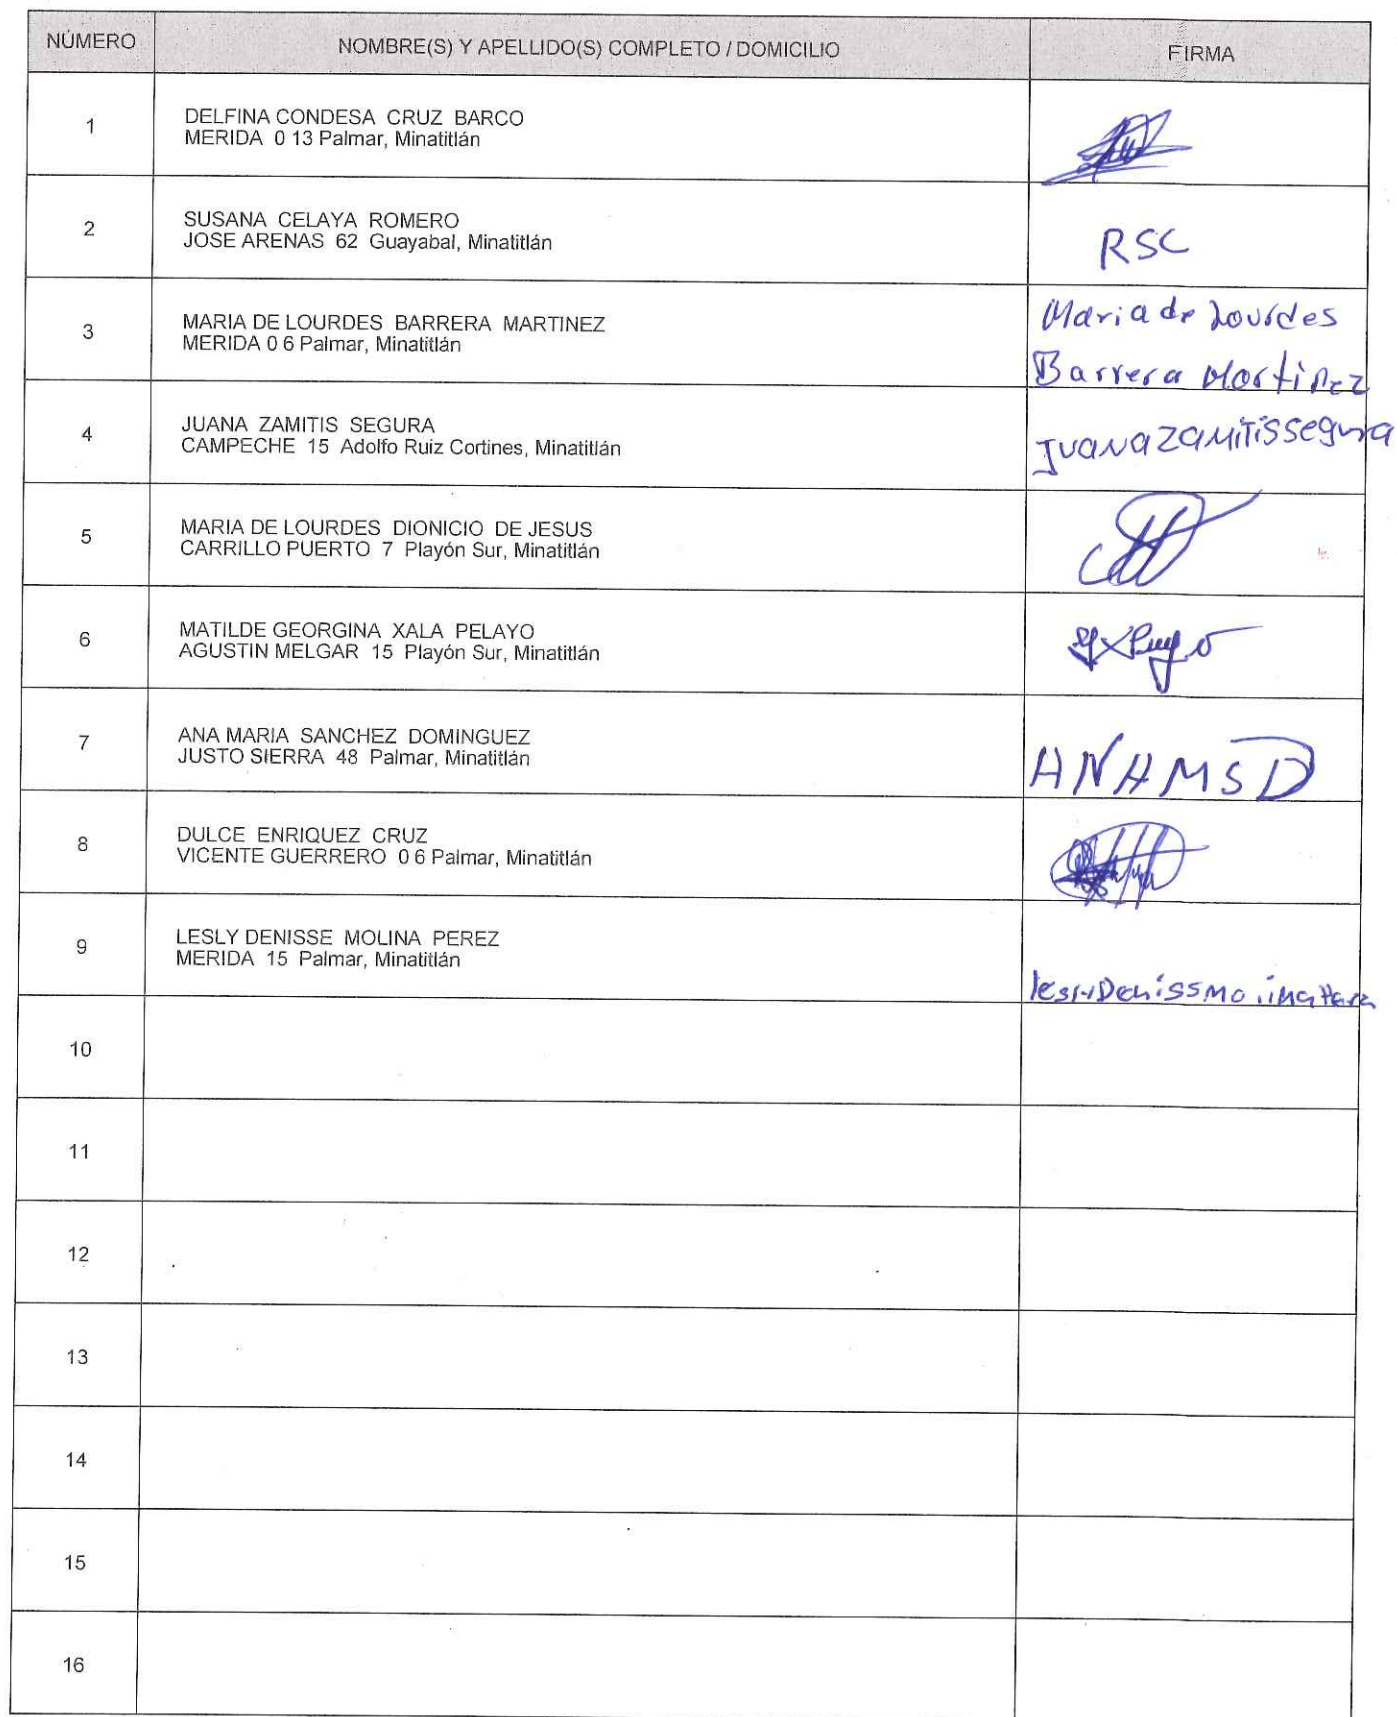 NÚMERO NOMBRE(S) Y APELLIDO(S) COMPLETO / DOMICILIO FIRMA
1 DELFINA CONDESA CRUZ BARCO
MERIDA 0 13 Palmar, Minatitlán
2 SUSANA CELAYA ROMERO
JOSE ARENAS 62 Guayabal, Minatitlán
RSC
3 MARIA DE LOURDES BARRERA MARTINEZ
MERIDA 0 6 Palmar, Minatitlán
Maria de Lourdes
Barrera Martinez
4 JUANA ZAMITIS SEGURA
CAMPECHE 15 Adolfo Ruiz Cortines, Minatitlán
Juana Zamitis Segura
5 MARIA DE LOURDES DIONICIO DE JESUS
CARRILLO PUERTO 7 Playón Sur, Minatitlán
6 MATILDE GEORGINA XALA PELAYO
AGUSTIN MELGAR 15 Playón Sur, Minatitlán
7 ANA MARIA SANCHEZ DOMINGUEZ
JUSTO SIERRA 48 Palmar, Minatitlán
ANAMSD
8 DULCE ENRIQUEZ CRUZ
VICENTE GUERRERO 0 6 Palmar, Minatitlán
9 LESLY DENISSE MOLINA PEREZ
MERIDA 15 Palmar, Minatitlán
10
11
12
13
14
15
16